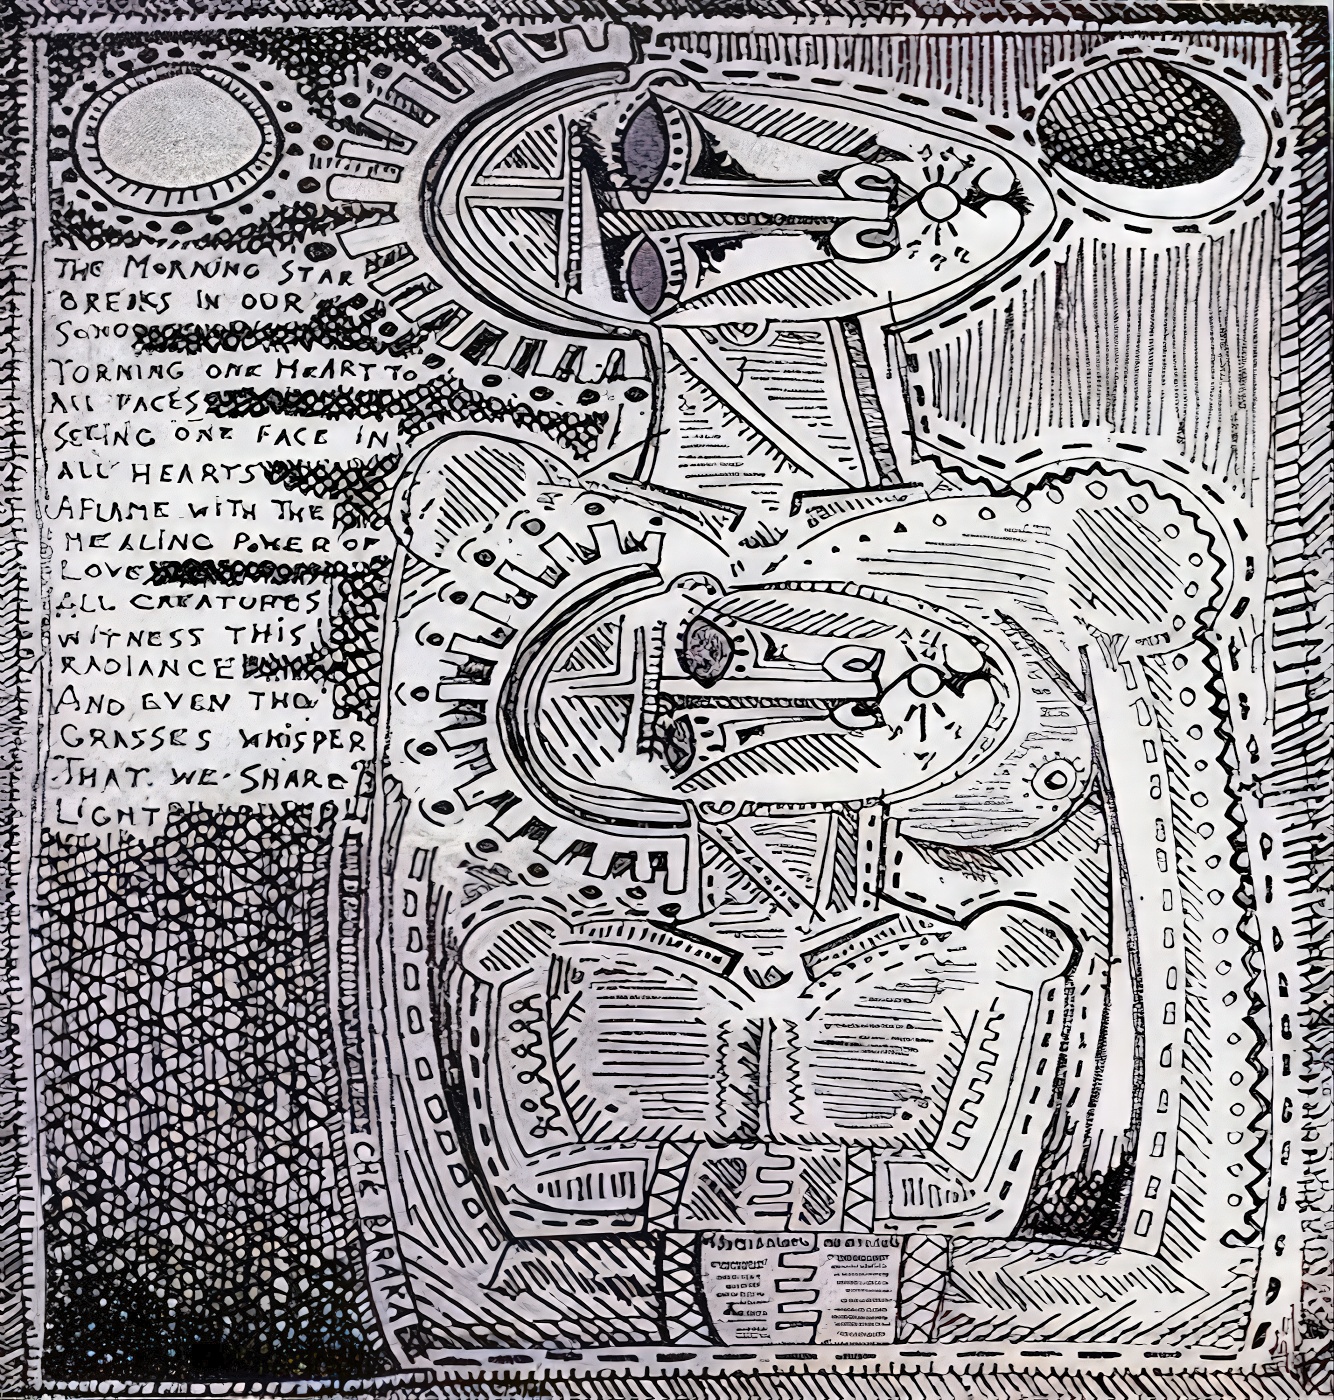 THE MORNING STAR
BREAKS IN OUR
SONG
TORNING ONE HEART TO
ALL FACES
SEEING ONE FACE IN
ALL HEARTS
AFLAME WITH THE
HEALING POWER OF
LOVE
ALL CREATURES
WITNESS THIS
RADIANCE
AND EVEN THO
GRASSES WHISPER
THAT WE SHARE
LIGHT